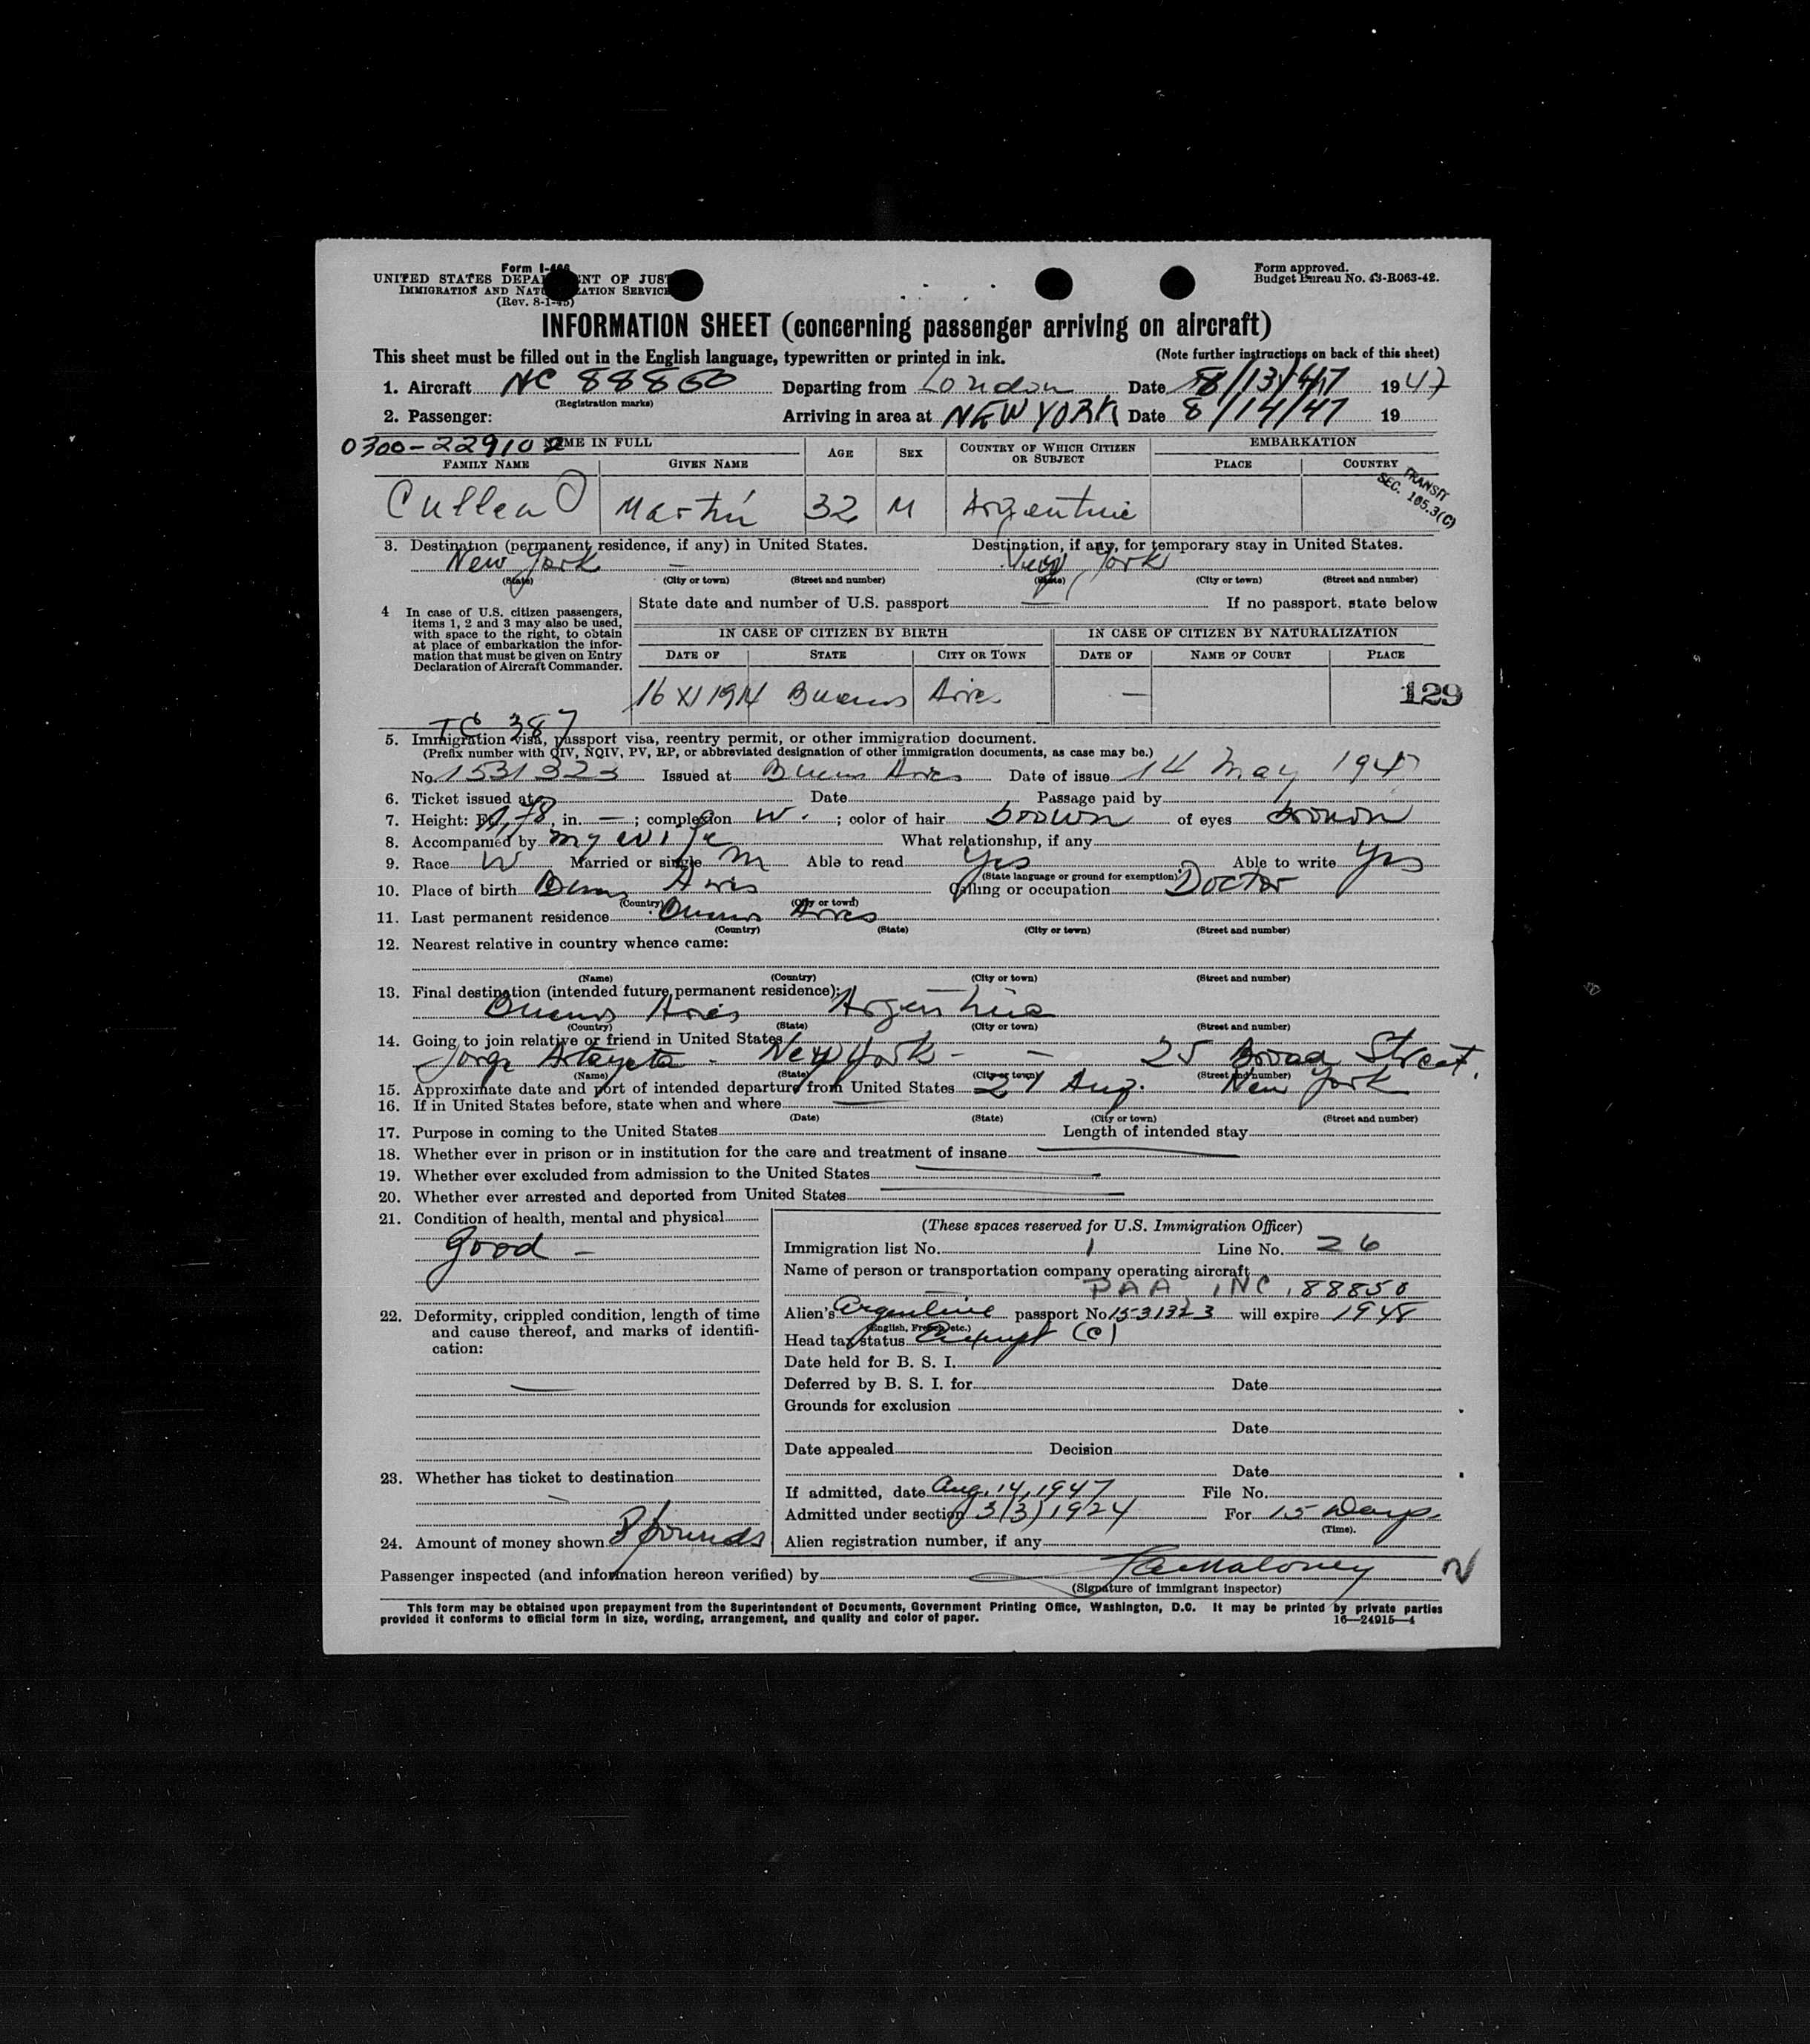 Form I-466
UNITED STATES DEPARTMENT OF JUSTICE
IMMIGRATION AND NATURALIZATION SERVICE
(Rev. 8-1-45)
Form approved.
Budget Bureau No. 43-R063-42.
INFORMATION SHEET (concerning passenger arriving on aircraft)
This sheet must be filled out in the English language, typewritten or printed in ink. (Note further instructions on back of this sheet)
1. Aircraft NC 88850 Departing from London Date 8/13/47 1947
(Registration marks)
2. Passenger: Arriving in area at NEW YORK Date 8/14/47 19
0300-229102 NAME IN FULL AGE SEX COUNTRY OF WHICH CITIZEN OR SUBJECT EMBARKATION
FAMILY NAME GIVEN NAME PLACE COUNTRY
TRANSIT
SEC. 165.3(C)
Cullen Martín 32 M Argentine
3. Destination (permanent residence, if any) in United States. Destination, if any, for temporary stay in United States.
New York — New York
(State) (City or town) (Street and number) (State) (City or town) (Street and number)
4 In case of U.S. citizen passengers, items 1, 2 and 3 may also be used, with space to the right, to obtain at place of embarkation the information that must be given on Entry Declaration of Aircraft Commander.
State date and number of U.S. passport — If no passport, state below
IN CASE OF CITIZEN BY BIRTH IN CASE OF CITIZEN BY NATURALIZATION
DATE OF STATE CITY OR TOWN DATE OF NAME OF COURT PLACE
16 XI 1914 Buenos Aires — 129
TC 387
5. Immigration visa, passport visa, reentry permit, or other immigration document.
(Prefix number with QIV, NQIV, PV, RP, or abbreviated designation of other immigration documents, as case may be.)
No. 1531323 Issued at Buenos Aires Date of issue 14 May 1947
6. Ticket issued at Date Passage paid by
7. Height: Ft. 1,78, in. — ; complexion W. ; color of hair brown of eyes brown
8. Accompanied by my wife What relationship, if any
9. Race W Married or single M Able to read Yes Able to write Yes
(State language or ground for exemption)
10. Place of birth Buenos Aires Calling or occupation Doctor
(Country) (City or town)
11. Last permanent residence Buenos Aires
(Country) (State) (City or town) (Street and number)
12. Nearest relative in country whence came:
(Name) (Country) (City or town) (Street and number)
13. Final destination (intended future permanent residence):
Buenos Aires Argentine
(Country) (State) (City or town) (Street and number)
14. Going to join relative or friend in United States
Jorge New York — — 25 Broad Street.
(Name) (State) (City or town) (Street and number)
15. Approximate date and port of intended departure from United States 27 Aug. New York
16. If in United States before, state when and where
(Date) (State) (City or town) (Street and number)
17. Purpose in coming to the United States Length of intended stay
18. Whether ever in prison or in institution for the care and treatment of insane
19. Whether ever excluded from admission to the United States
20. Whether ever arrested and deported from United States
21. Condition of health, mental and physical
Good —
22. Deformity, crippled condition, length of time and cause thereof, and marks of identification:
—
23. Whether has ticket to destination
—
24. Amount of money shown 8 pounds
(These spaces reserved for U.S. Immigration Officer)
Immigration list No. 1 Line No. 26
Name of person or transportation company operating aircraft
PAA, NC, 88850
Alien's Argentine passport No 1531323 will expire 1948
(English, French, etc.)
Head tax status Exempt (C)
Date held for B. S. I.
Deferred by B. S. I. for Date
Grounds for exclusion
Date
Date appealed Decision
Date
If admitted, date Aug. 14, 1947 File No.
Admitted under section 3(3) 1924 For 15 Days
(Time).
Alien registration number, if any
Passenger inspected (and information hereon verified) by Maloney
(Signature of immigrant inspector)
This form may be obtained upon prepayment from the Superintendent of Documents, Government Printing Office, Washington, D.C. It may be printed by private parties
provided it conforms to official form in size, wording, arrangement, and quality and color of paper. 16—24915—4